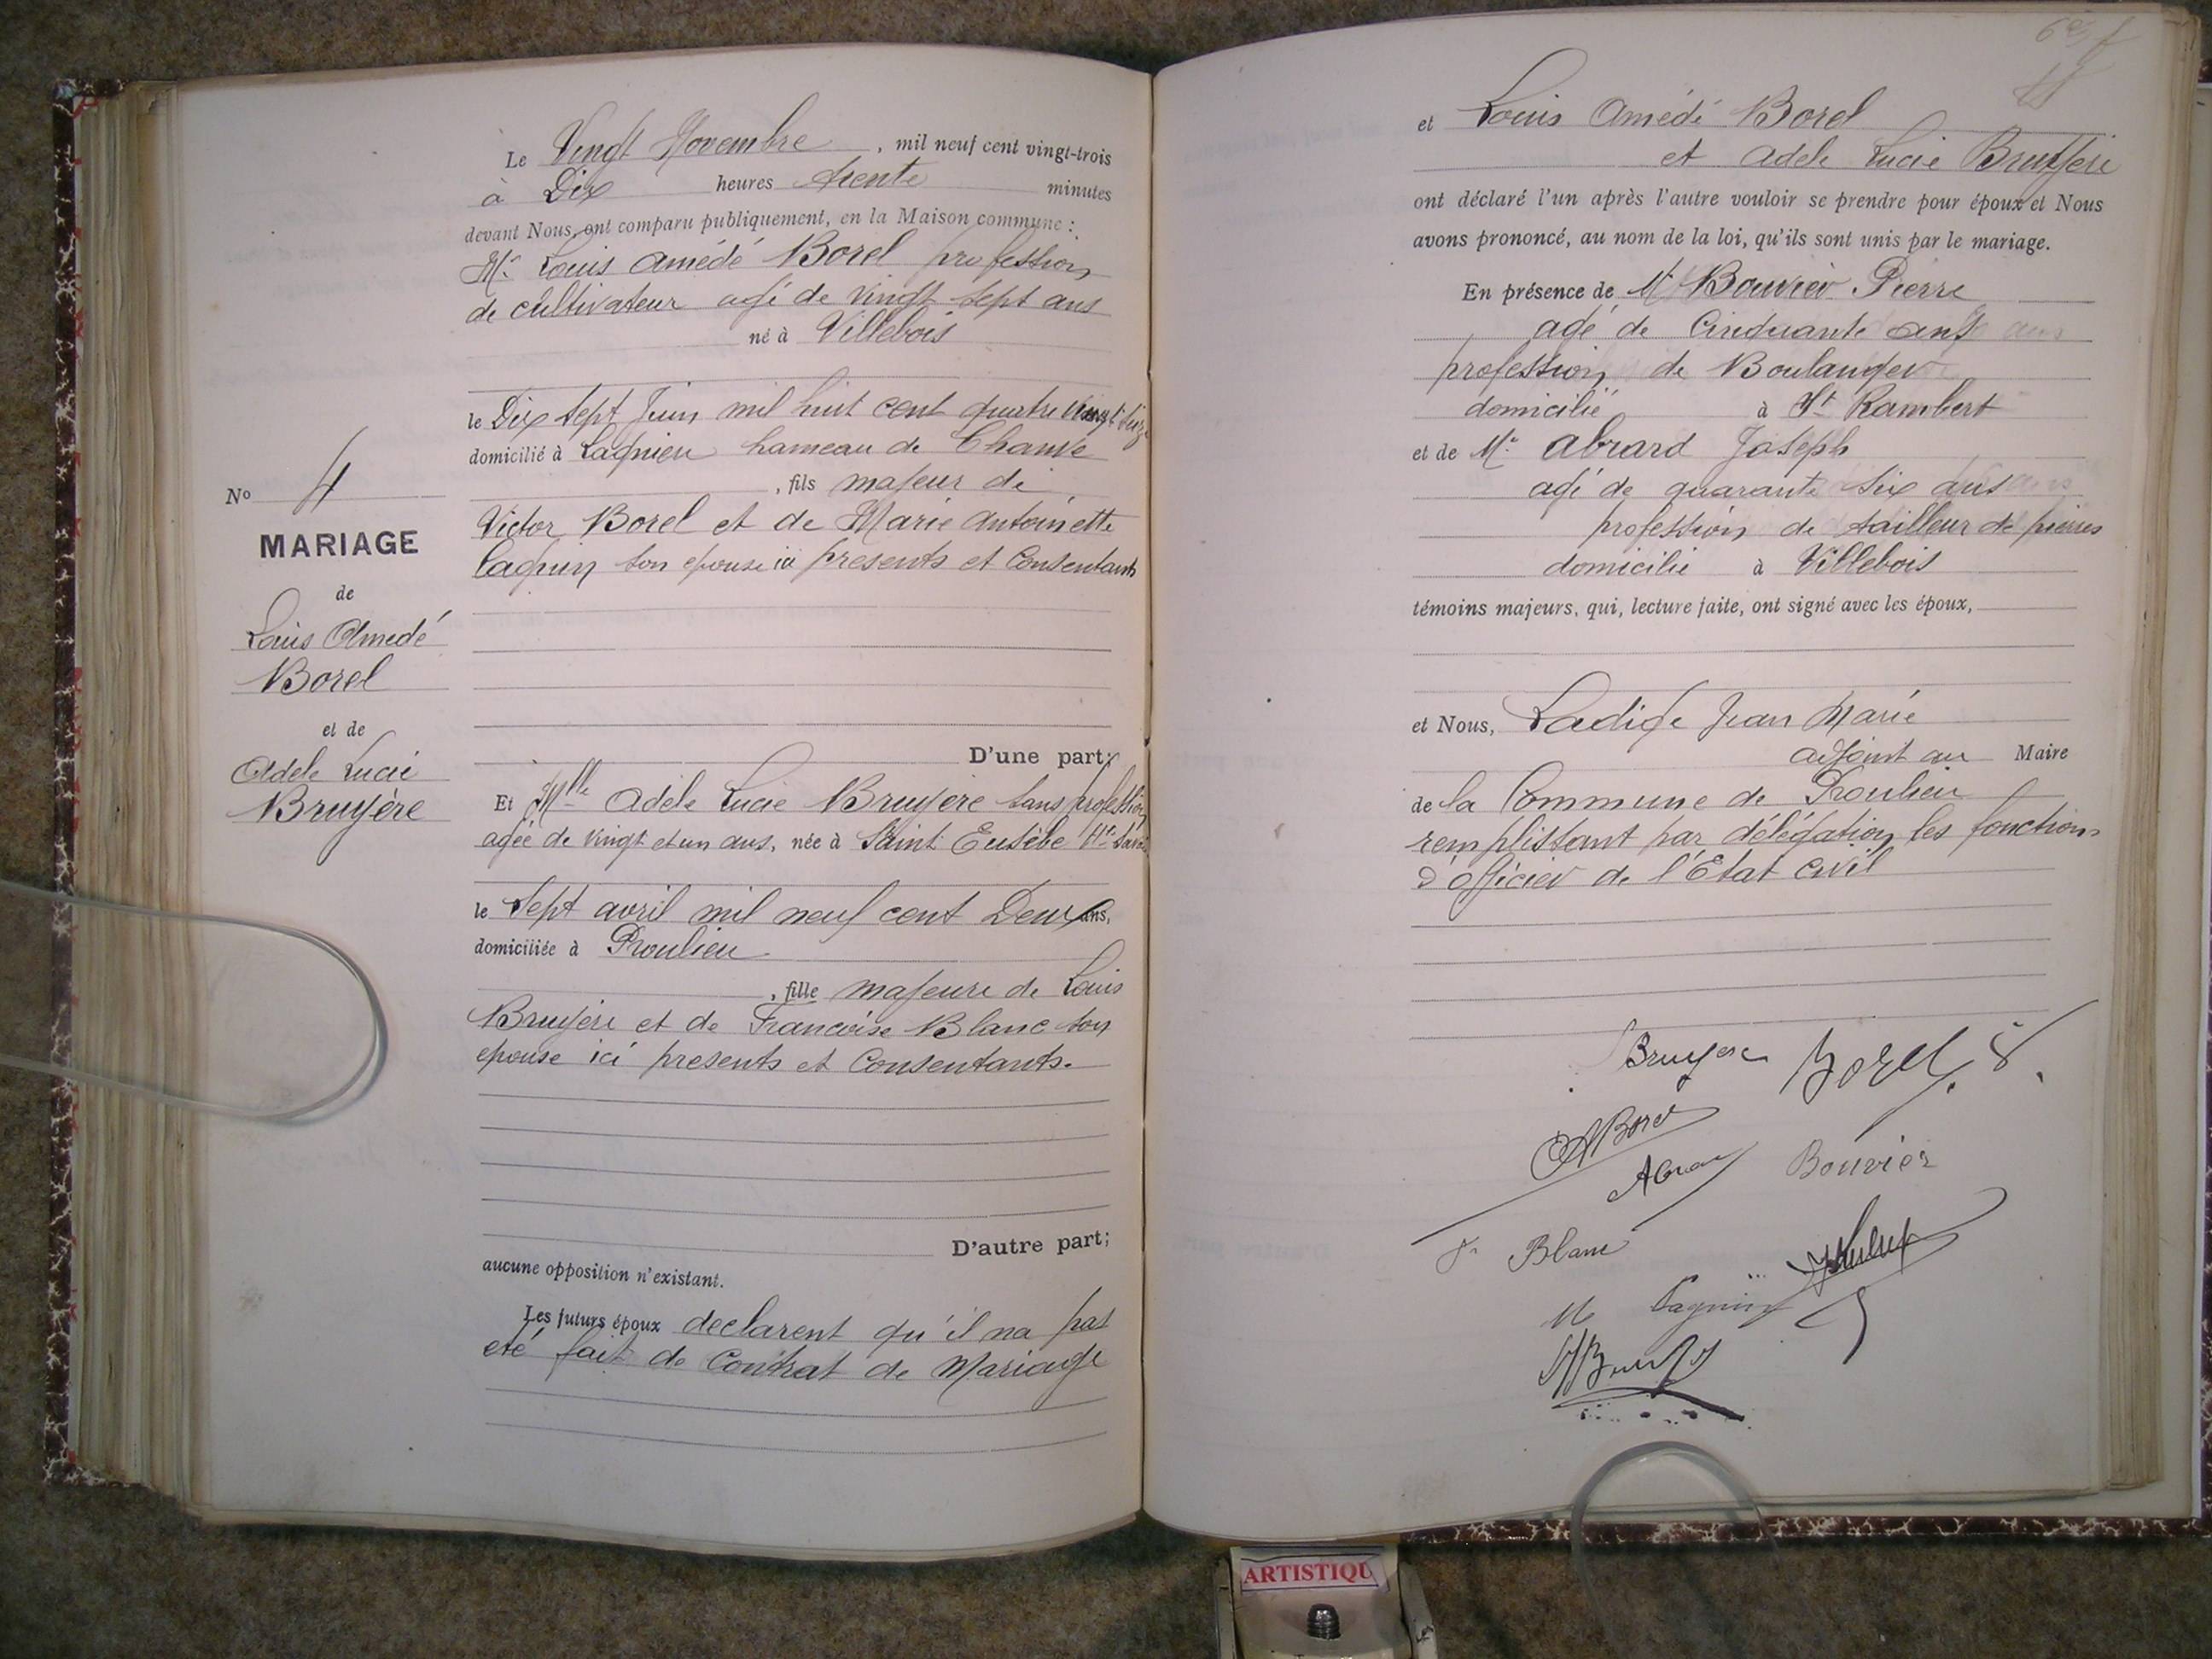 Nº 4
MARIAGE
de
Louis Amedé
Borel
et de
Adele Lucie
Bruyère
Le Vingt Novembre, mil neuf cent vingt-trois
à Dix heures trente minutes
devant Nous, ont comparu publiquement, en la Maison commune :
Mr Louis Amédé Borel profession
de cultivateur agé de vingt sept ans
né à Villebois
le Dix sept Juin mil huit cent quatre vingt seize
domicilié à Lagnieu hameau de Chanve
, fils majeur de
Victor Borel et de Marie Antoinette
Cagnin son epouse ici presents et Consentants
D'une part;
Et Mlle Adèle Lucie Bruyère sans profession
agée de vingt et un ans, née à Saint Eusèbe Hte Savoie
le Sept avril mil neuf cent Deux ans,
domiciliée à Proulieu
, fille majeure de Louis
Bruyère et de Francoise Blanc son
epouse ici presents et Consentants.
D'autre part;
aucune opposition n'existant.
Les futurs époux declarent qu'il na pas
eté fait de Contrat de Mariage
et Louis Amédé Borel
et Adele Lucie Bruyère
ont déclaré l'un après l'autre vouloir se prendre pour époux et Nous
avons prononcé, au nom de la loi, qu'ils sont unis par le mariage.
En présence de Mr Bouvier Pierre
agé de Cinquante ans
profession de Boulanger
domicilié à St Rambert
et de Mr Abrard Joseph
agé de quarante six ans
profession de tailleur de pierres
domicilié à Villebois
témoins majeurs, qui, lecture faite, ont signé avec les époux,
et Nous, Ladige Jean Marie
adjoint au Maire
de la Commune de Proulieu
remplissant par délégation les fonctions
d'officier de l'Etat civil
Bruyere Borel
A Borel
Bouvier
Blanc
ARTISTIQU